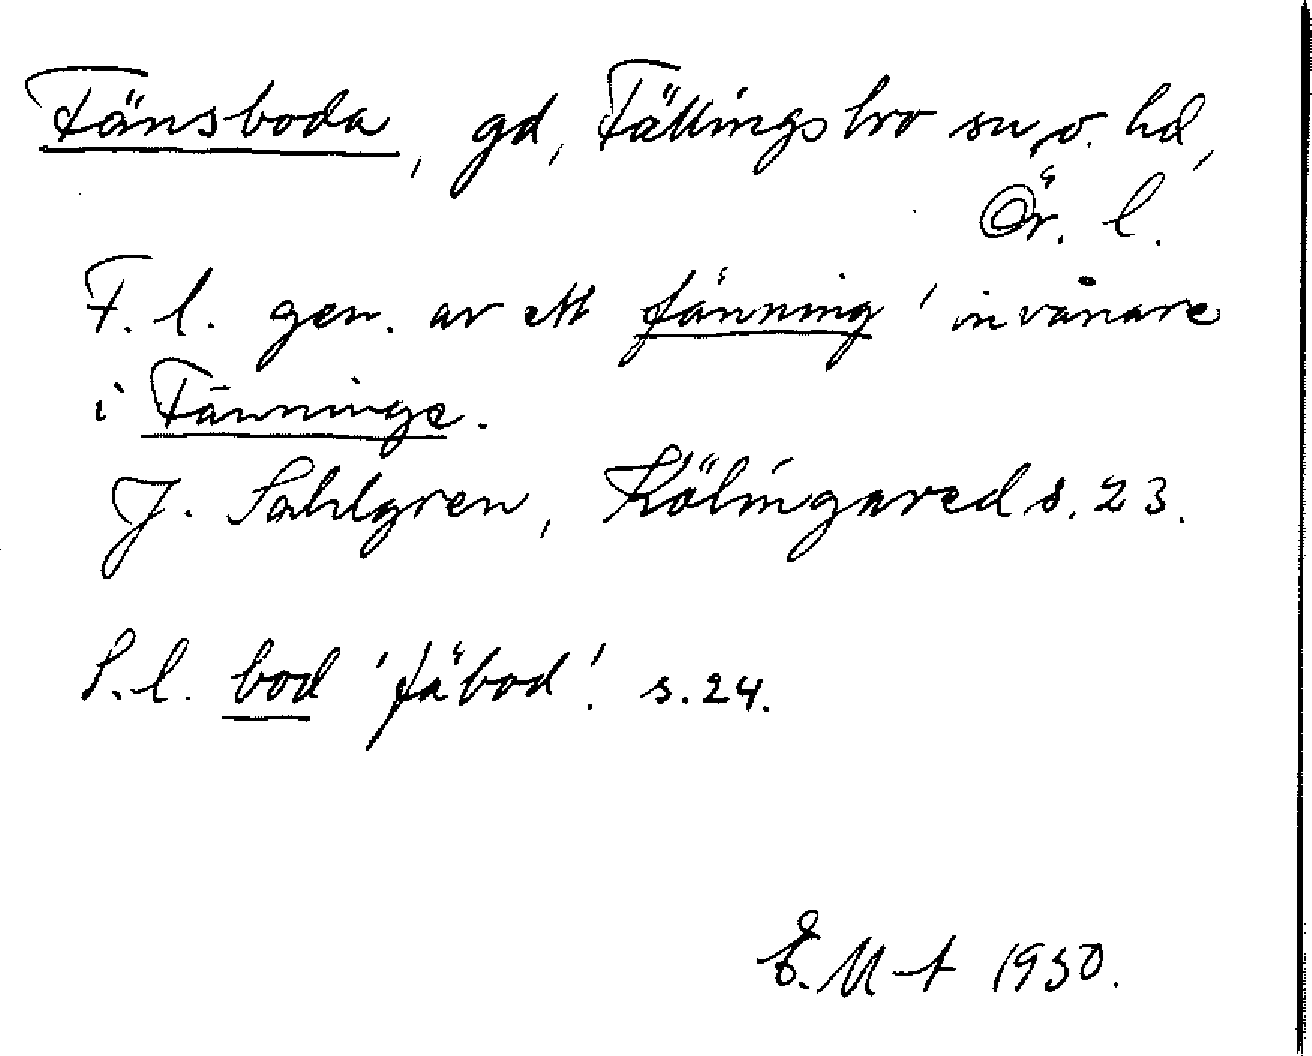 Fänsboda, gd, Fellingsbro sn o. hd,
Ör. l.
F. l. gen. av ett fänning 'invånare
i Fänninge.
J. Sahlgren, Kölingared s. 23.
S. l. bod 'fäbod'. s. 24.
E. M-t 1930.